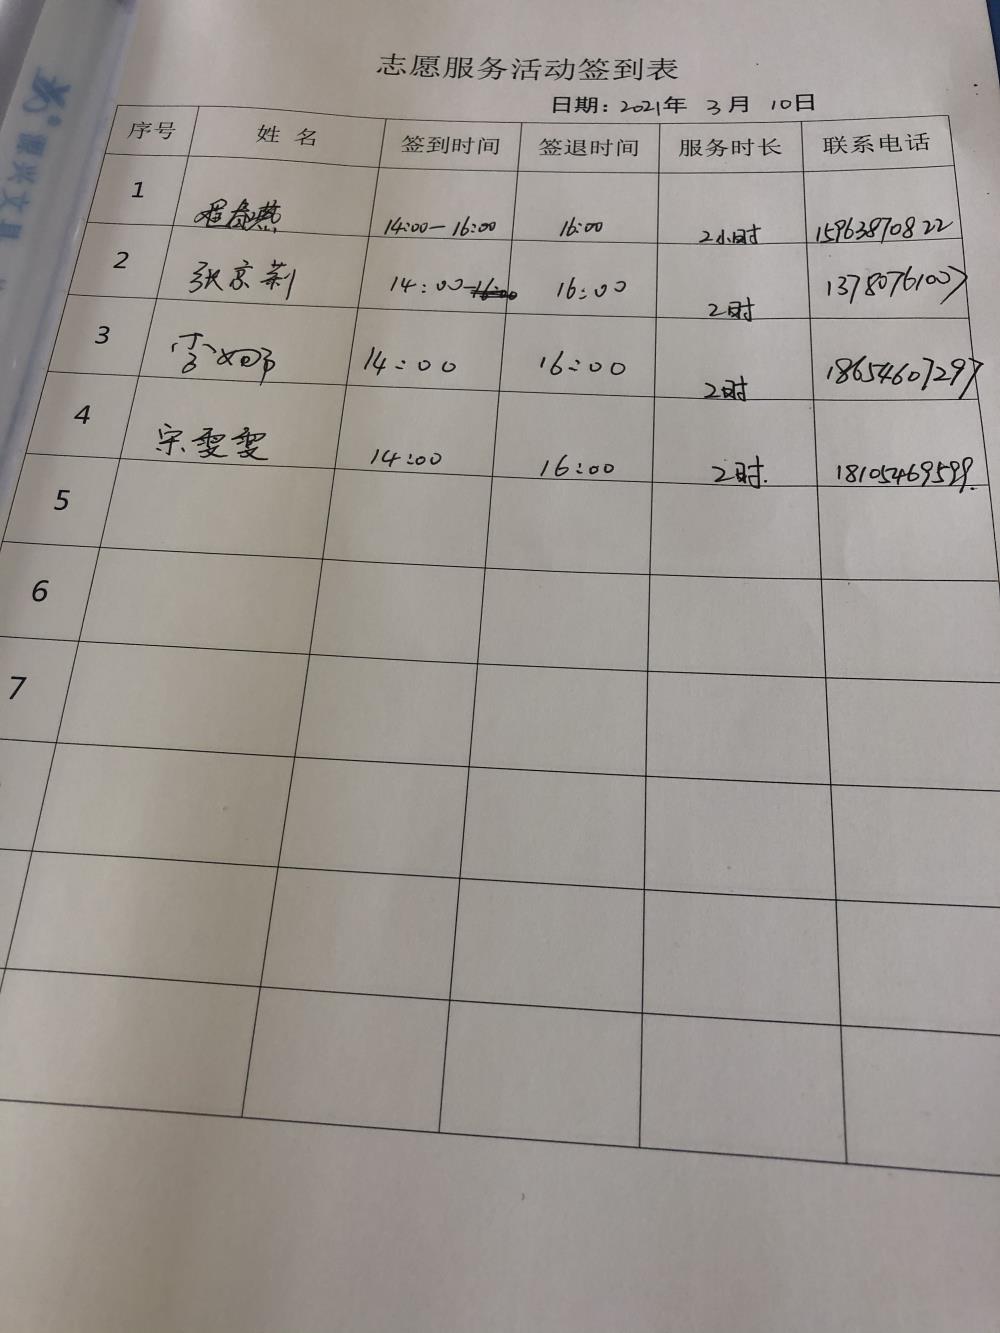 志愿服务活动签到表
日期：2021年 3月 10日
序号 姓 名 签到时间 签退时间 服务时长 联系电话
1 程春燕 14:00-16:00 16:00 2小时 15963870822
2 张京莉 14:00 16:00 2时 13780761007
3 李娜 14:00 16:00 2时 18654607297
4 宋雯雯 14:00 16:00 2时. 18105469599.
5
6
7
文具